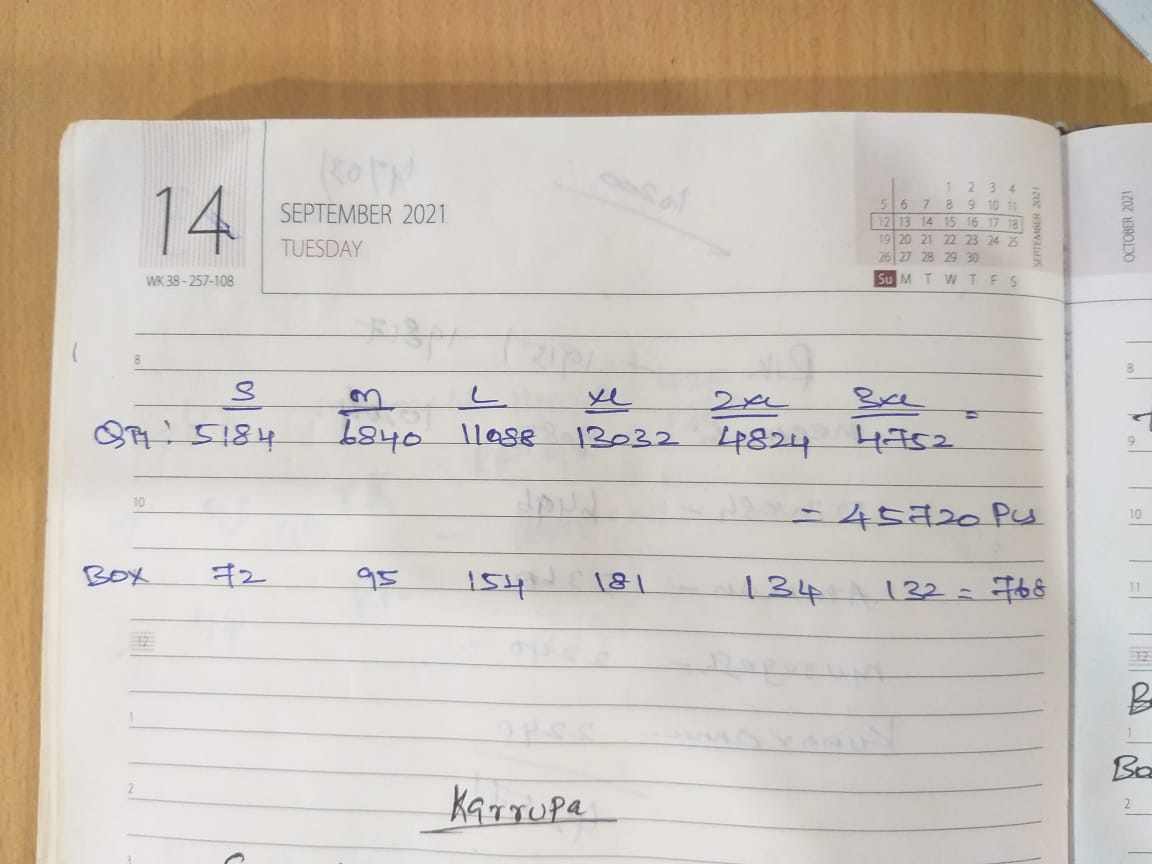 14
SEPTEMBER 2021
TUESDAY
WK 38 - 257-108
1 2 3 4
5 6 7 8 9 10 11
12 13 14 15 16 17 18
19 20 21 22 23 24 25
26 27 28 29 30
Su M T W T F S
SEPTEMBER 2021
OCTOBER 2021
8
S M L XL 2XL 3XL
QTY: 5184 6840 11088 13032 4824 4752 =
10
= 45720 Pcs
BOX 72 95 154 181 134 132 = 768
12
1
2
Karrupa
3
8
9
10
11
12
1
Bo
2